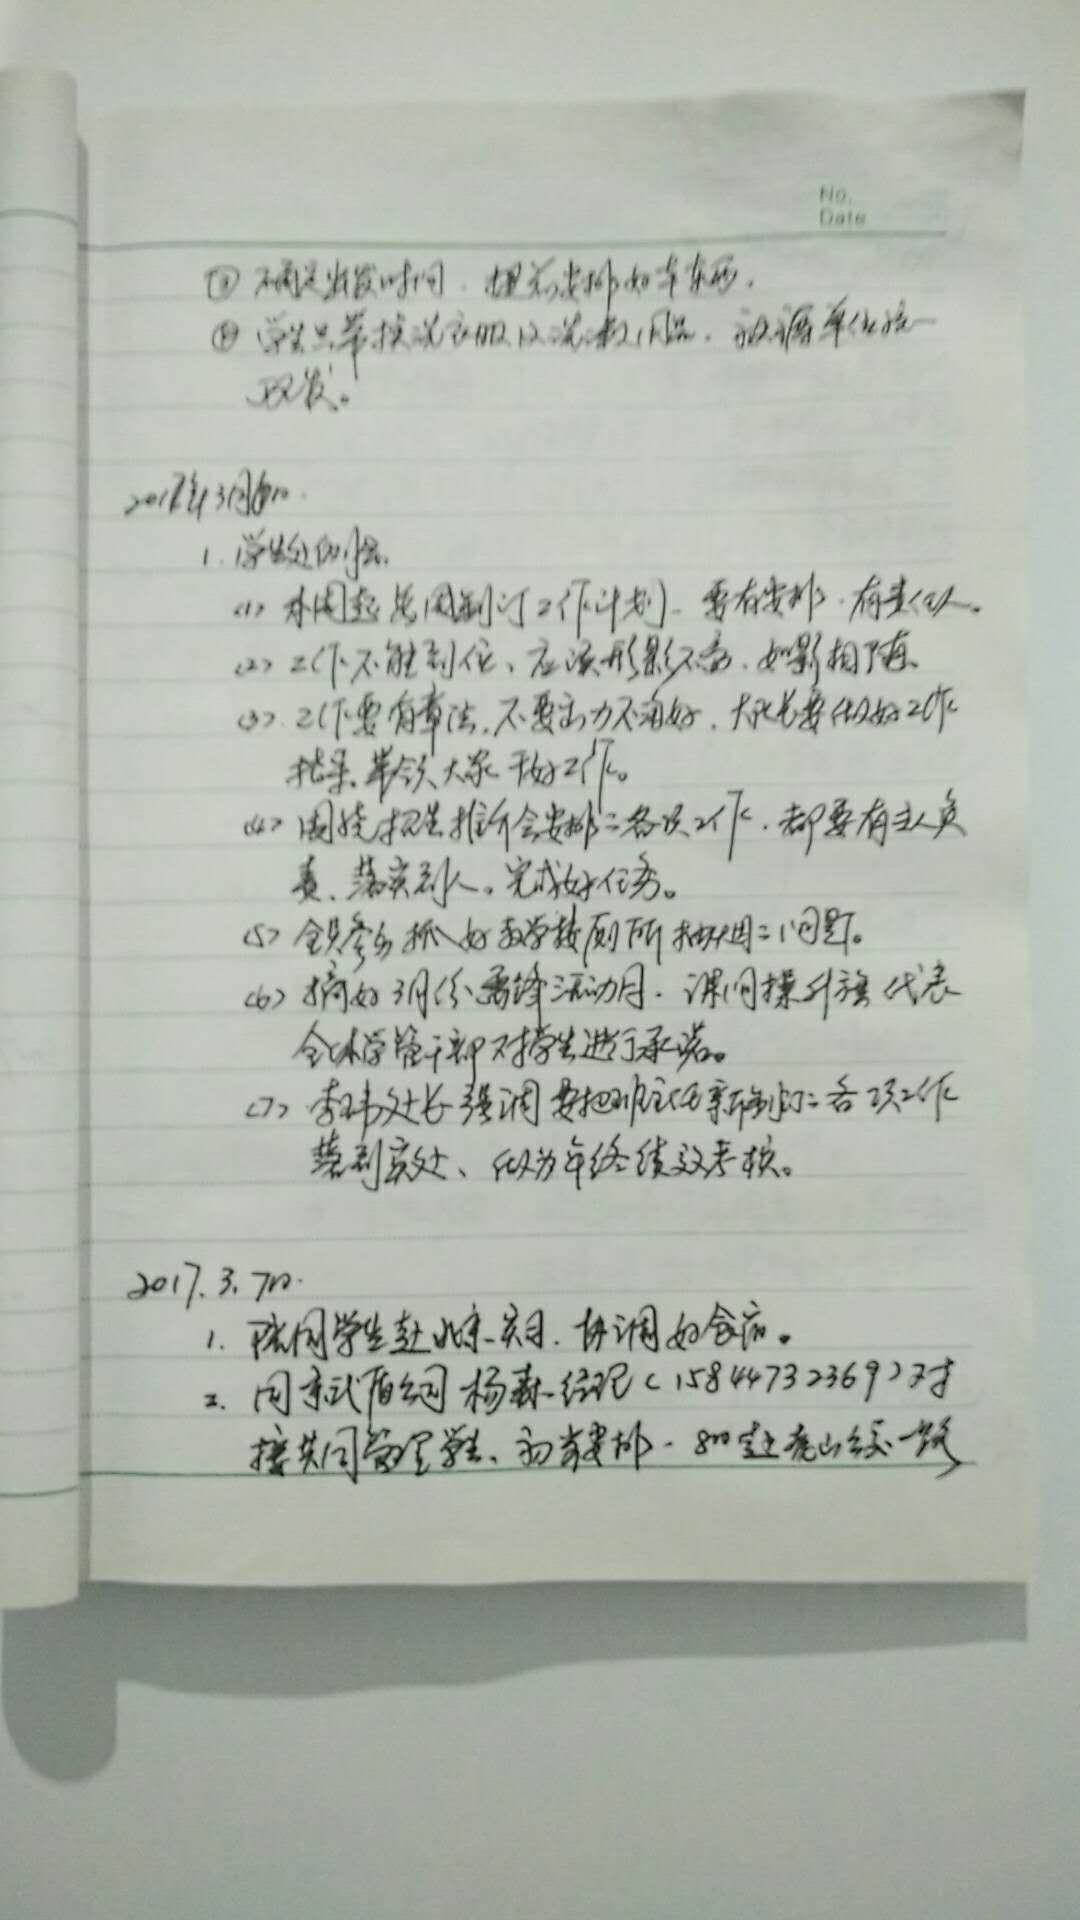 No.
Date
③ 不确定出发时间，提前安排好车东西。
④ 学生只带换洗衣服及洗漱用品，被褥单位统一
发。
2017年3月6日.
1. 学生处例会
(1) 本周起每周制订工作计划、要有安排、有责任人。
(2) 工作不能到位、应该形影不离、如影相随。
(3) 工作要有章法，不要出力不讨好，大队长要做好工作
指导、带领大家干好工作。
(4) 围绕招生推介会安排二各项工作，都要有主人负
责、落实到人。完成好任务。
(5) 全员参与抓好教学楼厕所抽烟二问题。
(6) 搞好3月份雷锋活动月，课间操升旗代表
全体学管干部对学生进行承诺。
(7) 李玮处长强调要把班主任新制订二各项工作
落到实处、做为年终绩效考核。
2017.3.7日.
1. 陪同学生赴北京实习，协调好食宿。
2. 同京武盾公司杨森经理(15844732369)对
接共同管理学生、初步安排、800赴 一路